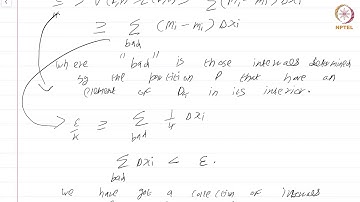 NPTEL
≥ Σ (Mi - mi) Δxi
bad
where "bad" is those intervals determined
by the partition P that have an
element of Dα in its interior.
ε/k ≥ Σ 1/4 Δxi
bad
Σ Δxi < ε.
bad
we have got a collection of intervals